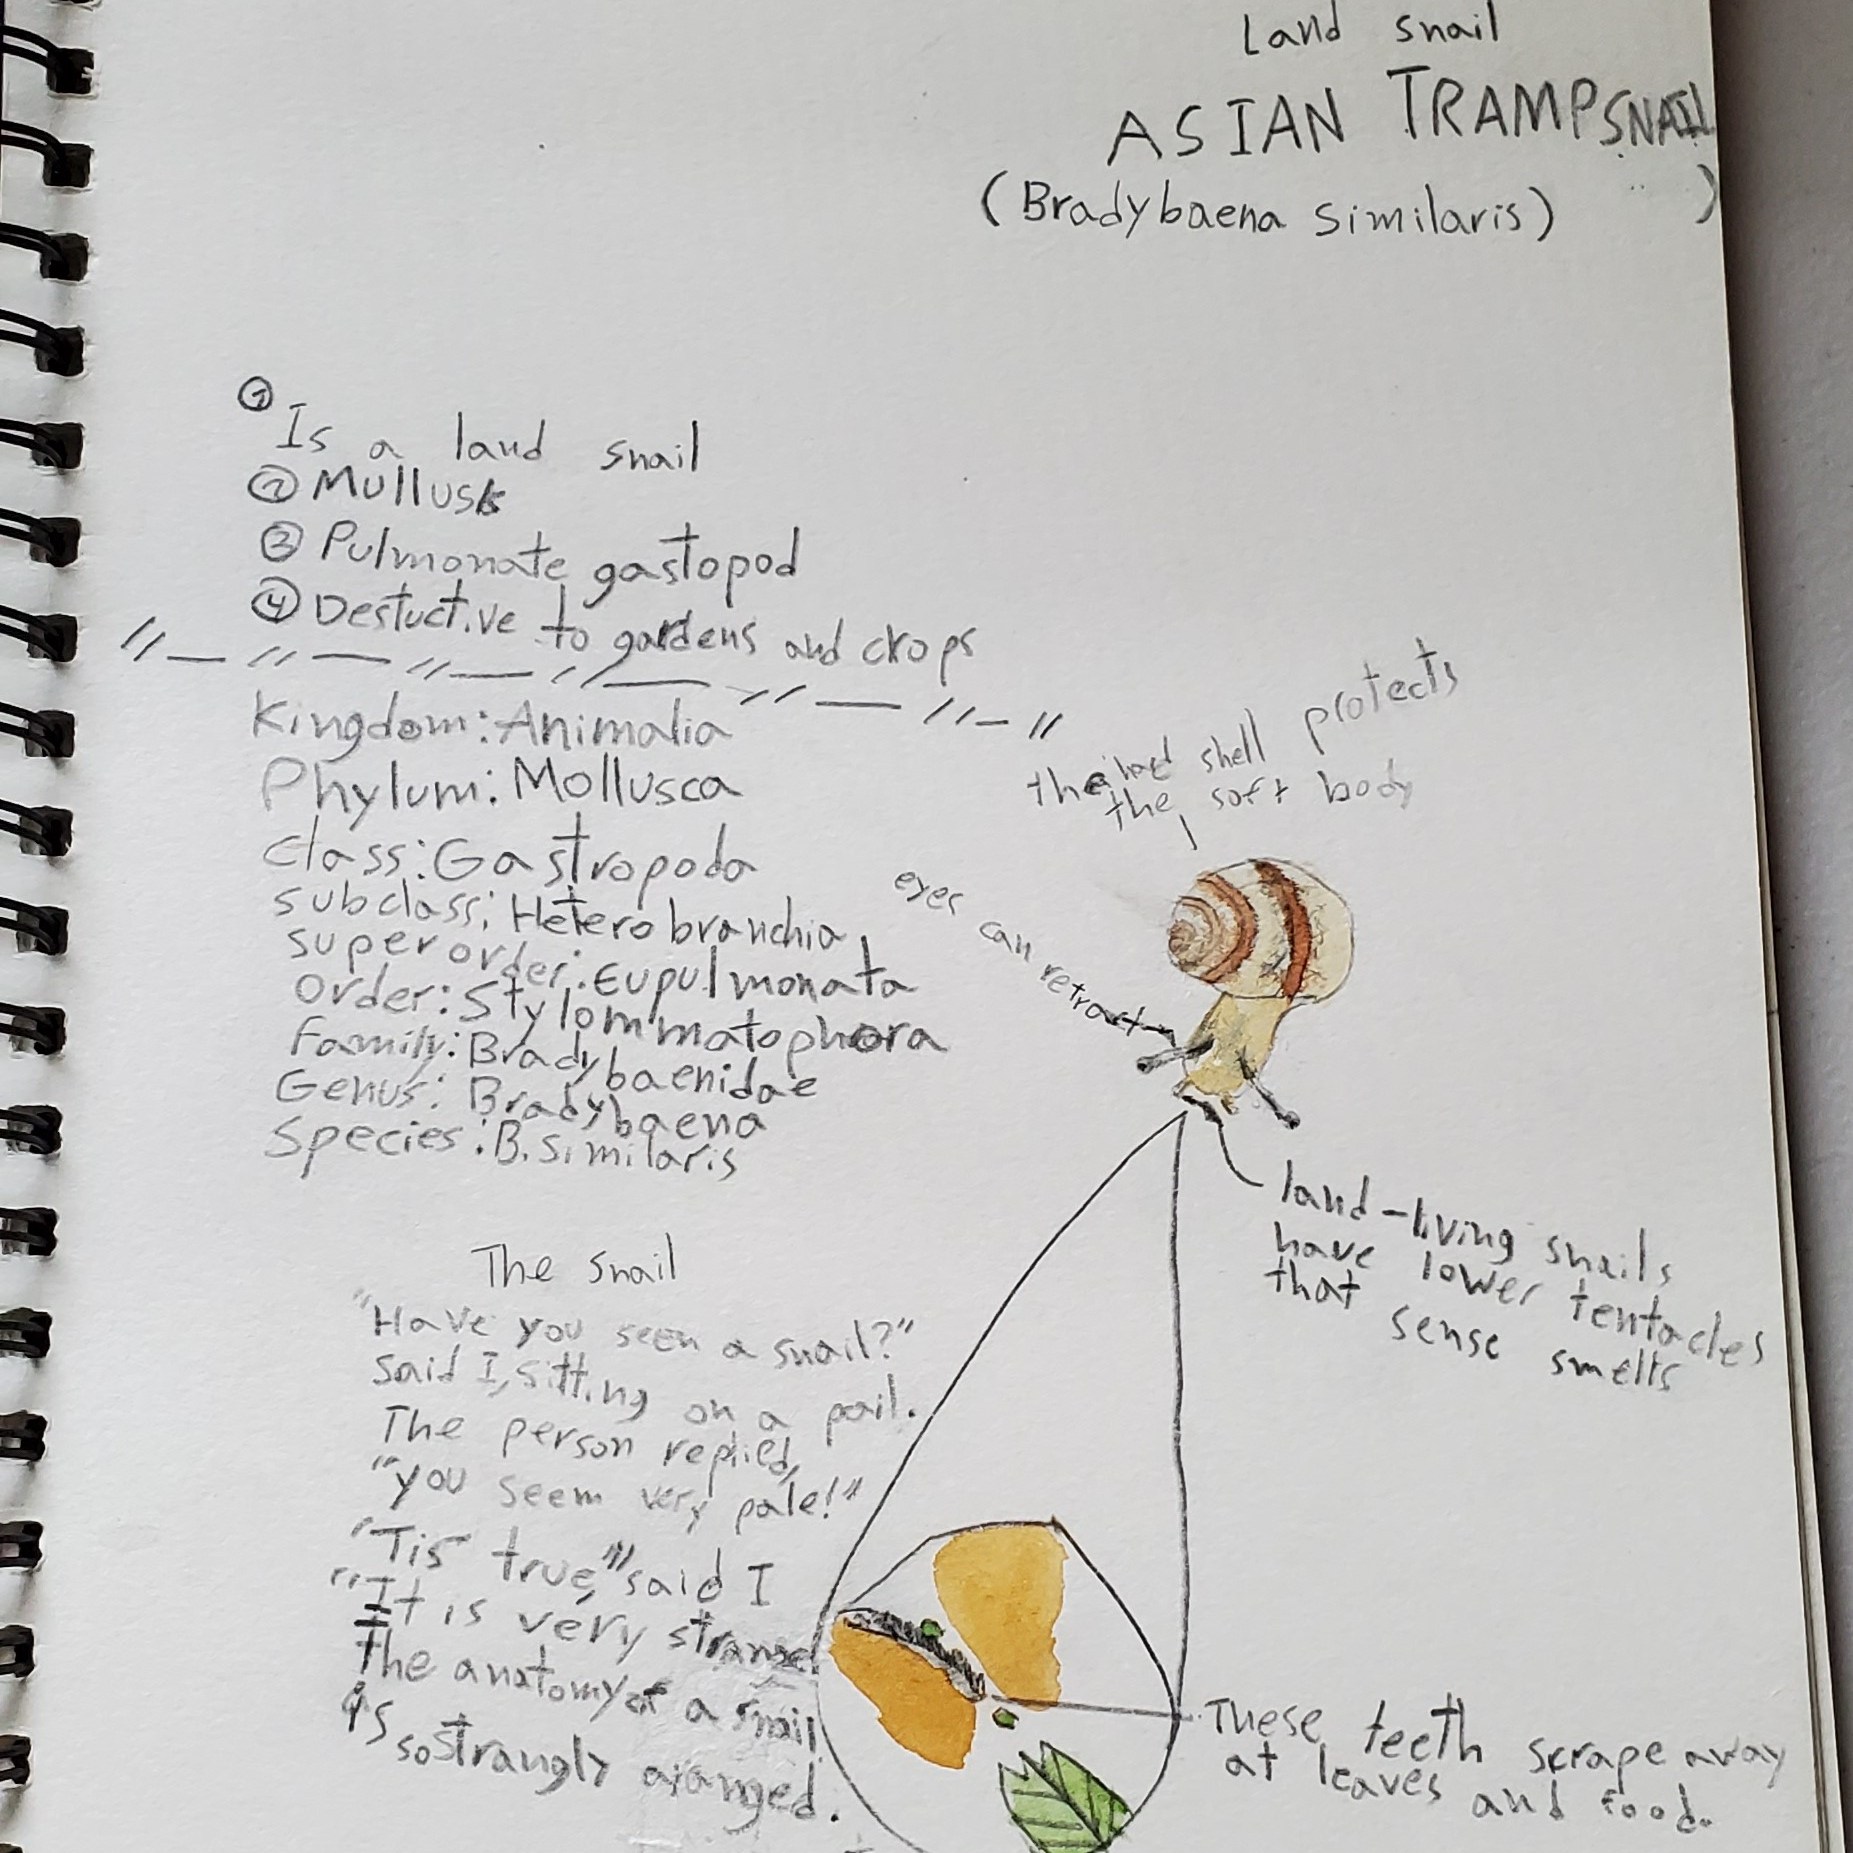 Land snail
ASIAN TRAMP SNAIL
(Bradybaena Similaris) )
① Is a land snail
② Mullusk
③ Pulmonate gastopod
④ Destuctive to gardens and crops
Kingdom: Animalia
Phylum: Mollusca
Class: Gastropoda
subclass: Heterobranchia
superorder: Eupulmonata
Order: Stylommatophora
Family: Bradybaenidae
Genus: Bradybaena
Species: B. Similaris
the hard shell protects
the soft body
eyes can retract
land-living snails
have lower tentacles
that sense smells
The snail
"Have you seen a snail?"
said I, sitting on a pail.
The person replied,
"you seem very pale!"
"Tis true," said I
"It is very strange
The anatomy of a snail
is so strangly aranged.
These teeth scrape away
at leaves and food.